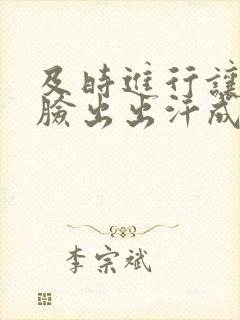 及時進行讓
臉出出汗成
李宗斌